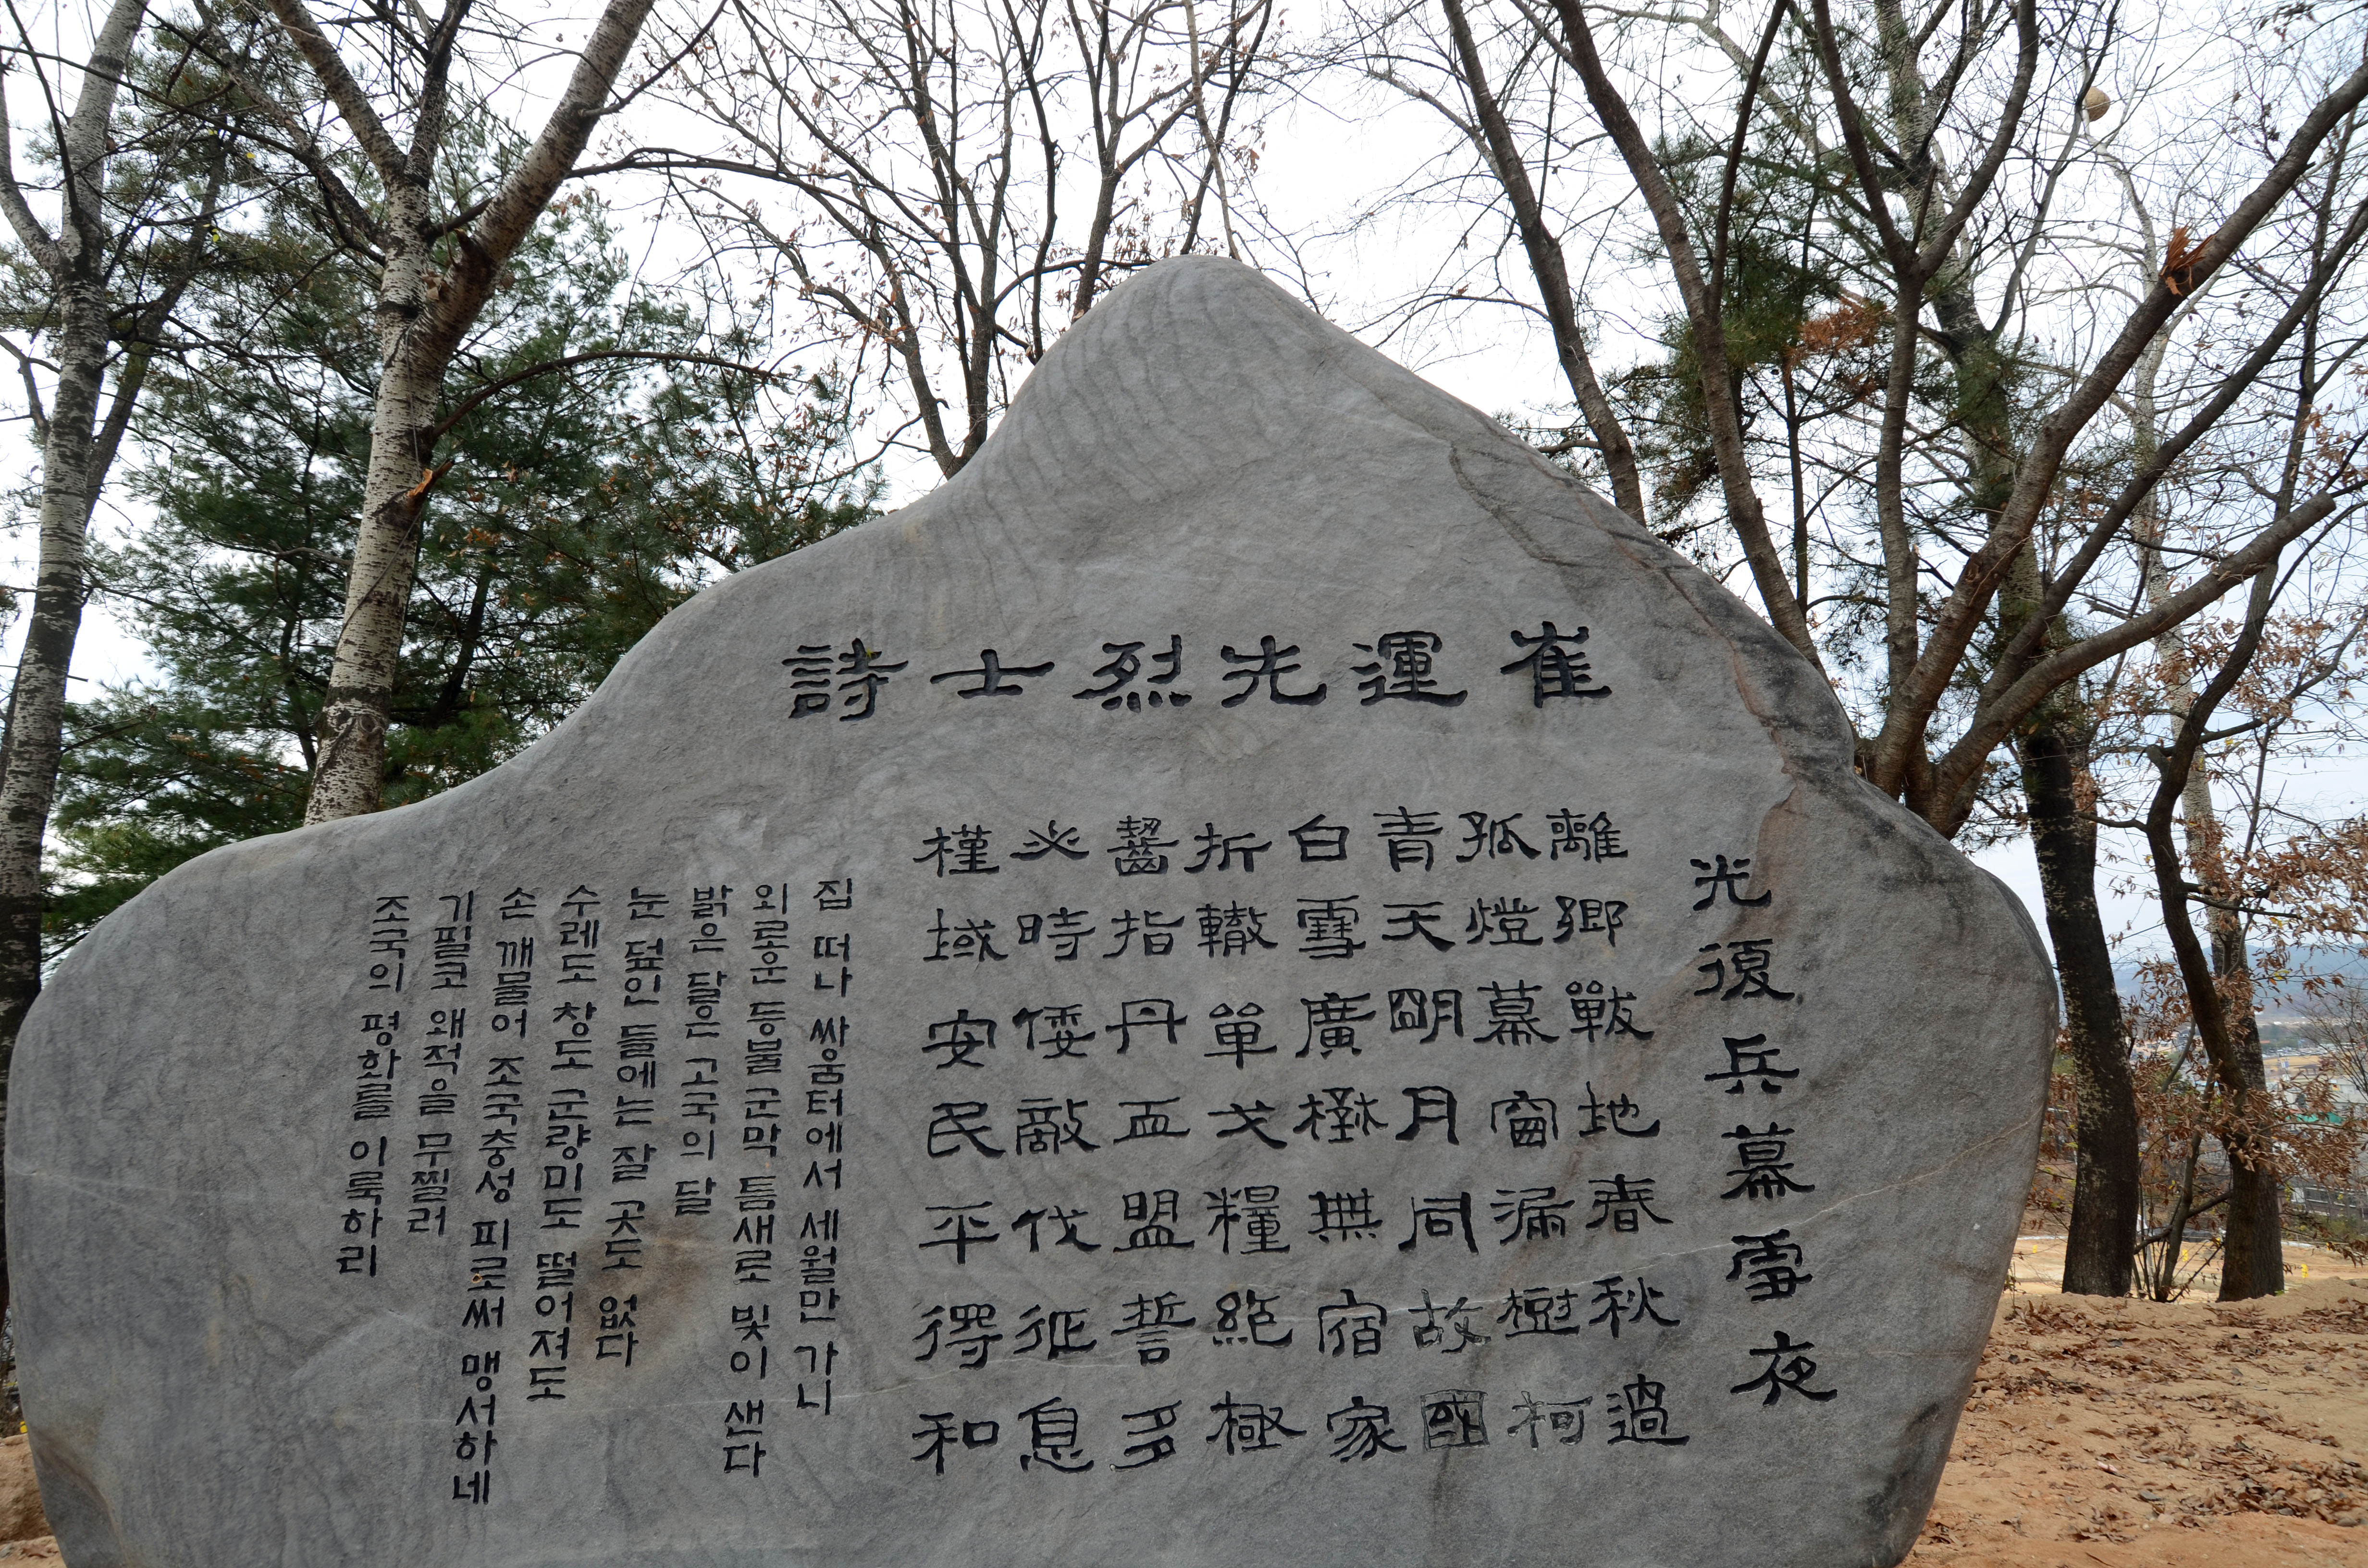 崔運先烈士詩
光復兵幕雪夜
離鄕戰地春秋過
孤燈幕窗漏樹柯
青天明月同故國
白雪廣壄無宿家
折轍單戈糧絶極
齧指丹血盟誓多
必時倭敵伐征息
槿域安民平得和
집 떠나 싸움터에서 세월만 가니
외로운 등불 군막 틈새로 빛이 샌다
밝은 달은 고국의 달
눈 덮인 들에는 잘 곳도 없다
수레도 창도 군량미도 떨어져도
손 깨물어 조국충성 피로써 맹서하네
기필코 왜적을 무찔러
조국의 평화를 이룩하리